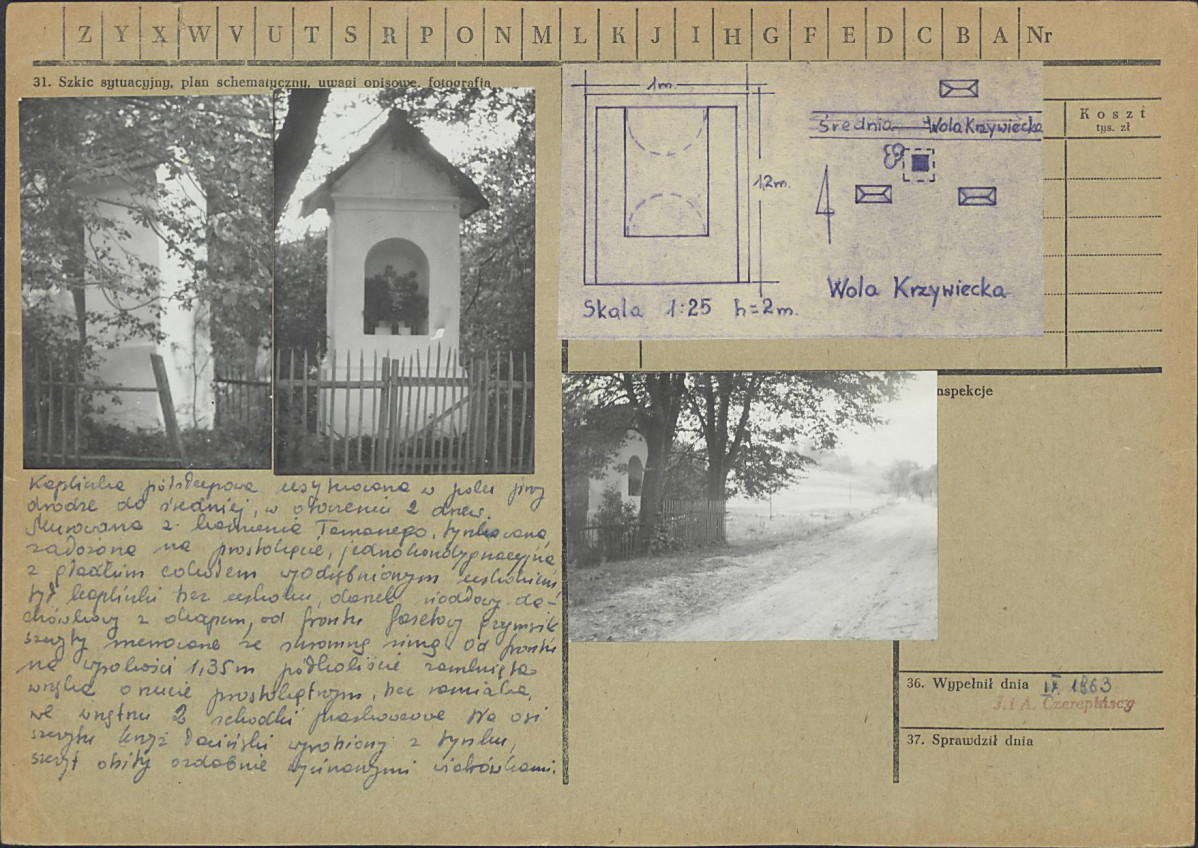 Z Y X W V U T S R P O N M L K J I H G F E D C B A Nr
31. Szkic sytuacyjny, plan schematyczny, uwagi opisowe, fotografia
1m.
1,2m.
Skala 1:25 h=2m.
Średnia Wola Krzywiecka
Wola Krzywiecka
Koszt
tys. zł
nspekcje
Kapliczka usytuowana w polu przy
drodze do Średniej, w otoczeniu 2 drzew.
Murowana z kamienia łamanego, tynkowana,
założona na prostokącie, jednokondygnacyjna
z gładkim cokołem wyodrębnionym uskokiem,
tył kapliczki bez uskoku, daszek siodłowy da-
chówkowy z okapem, od frontu fasetowy gzymsik
szczyty murowane ze skromną ramą. Od frontu
na wysokości 1,35m półkoliście zamknięta
wnęka o rzucie prostokątnym, bez
we wnętrzu 2 schodki piaskowcowe. Na osi
szczytu krzyż łaciński wyrobiony z tynku,
szczyt obity ozdobnie wycinanymi wiatrówkami.
36. Wypełnił dnia IX 1963
J. i A. Czerepińscy
37. Sprawdził dnia